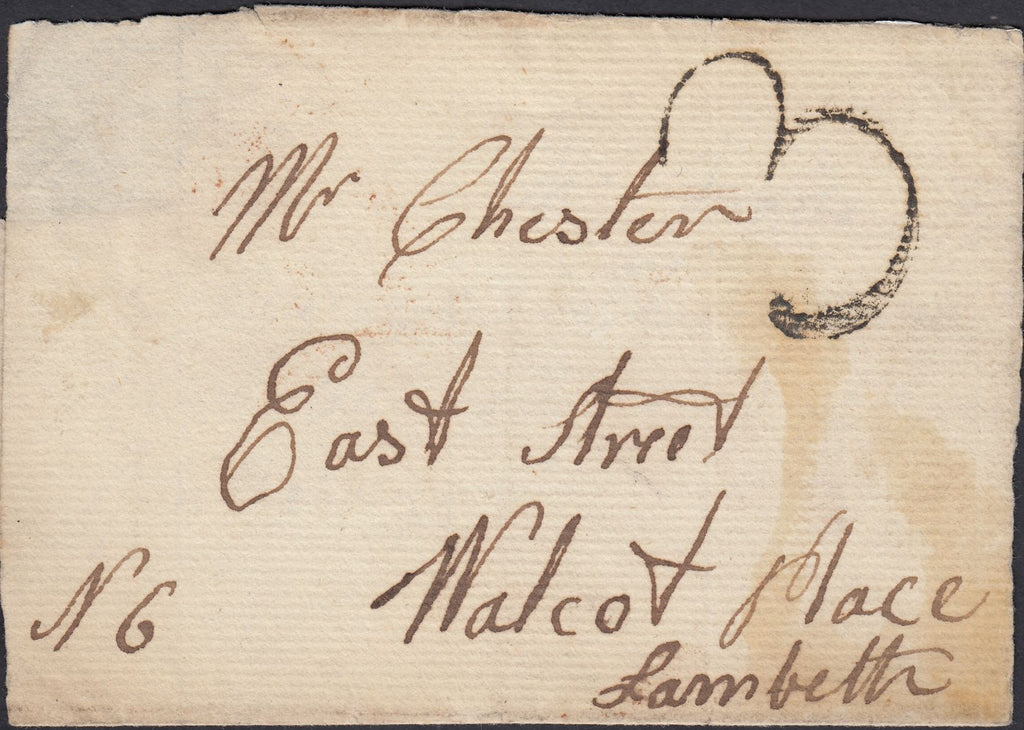 3
Mr Chester
East Street
Walcot Place
N 6
Lambeth